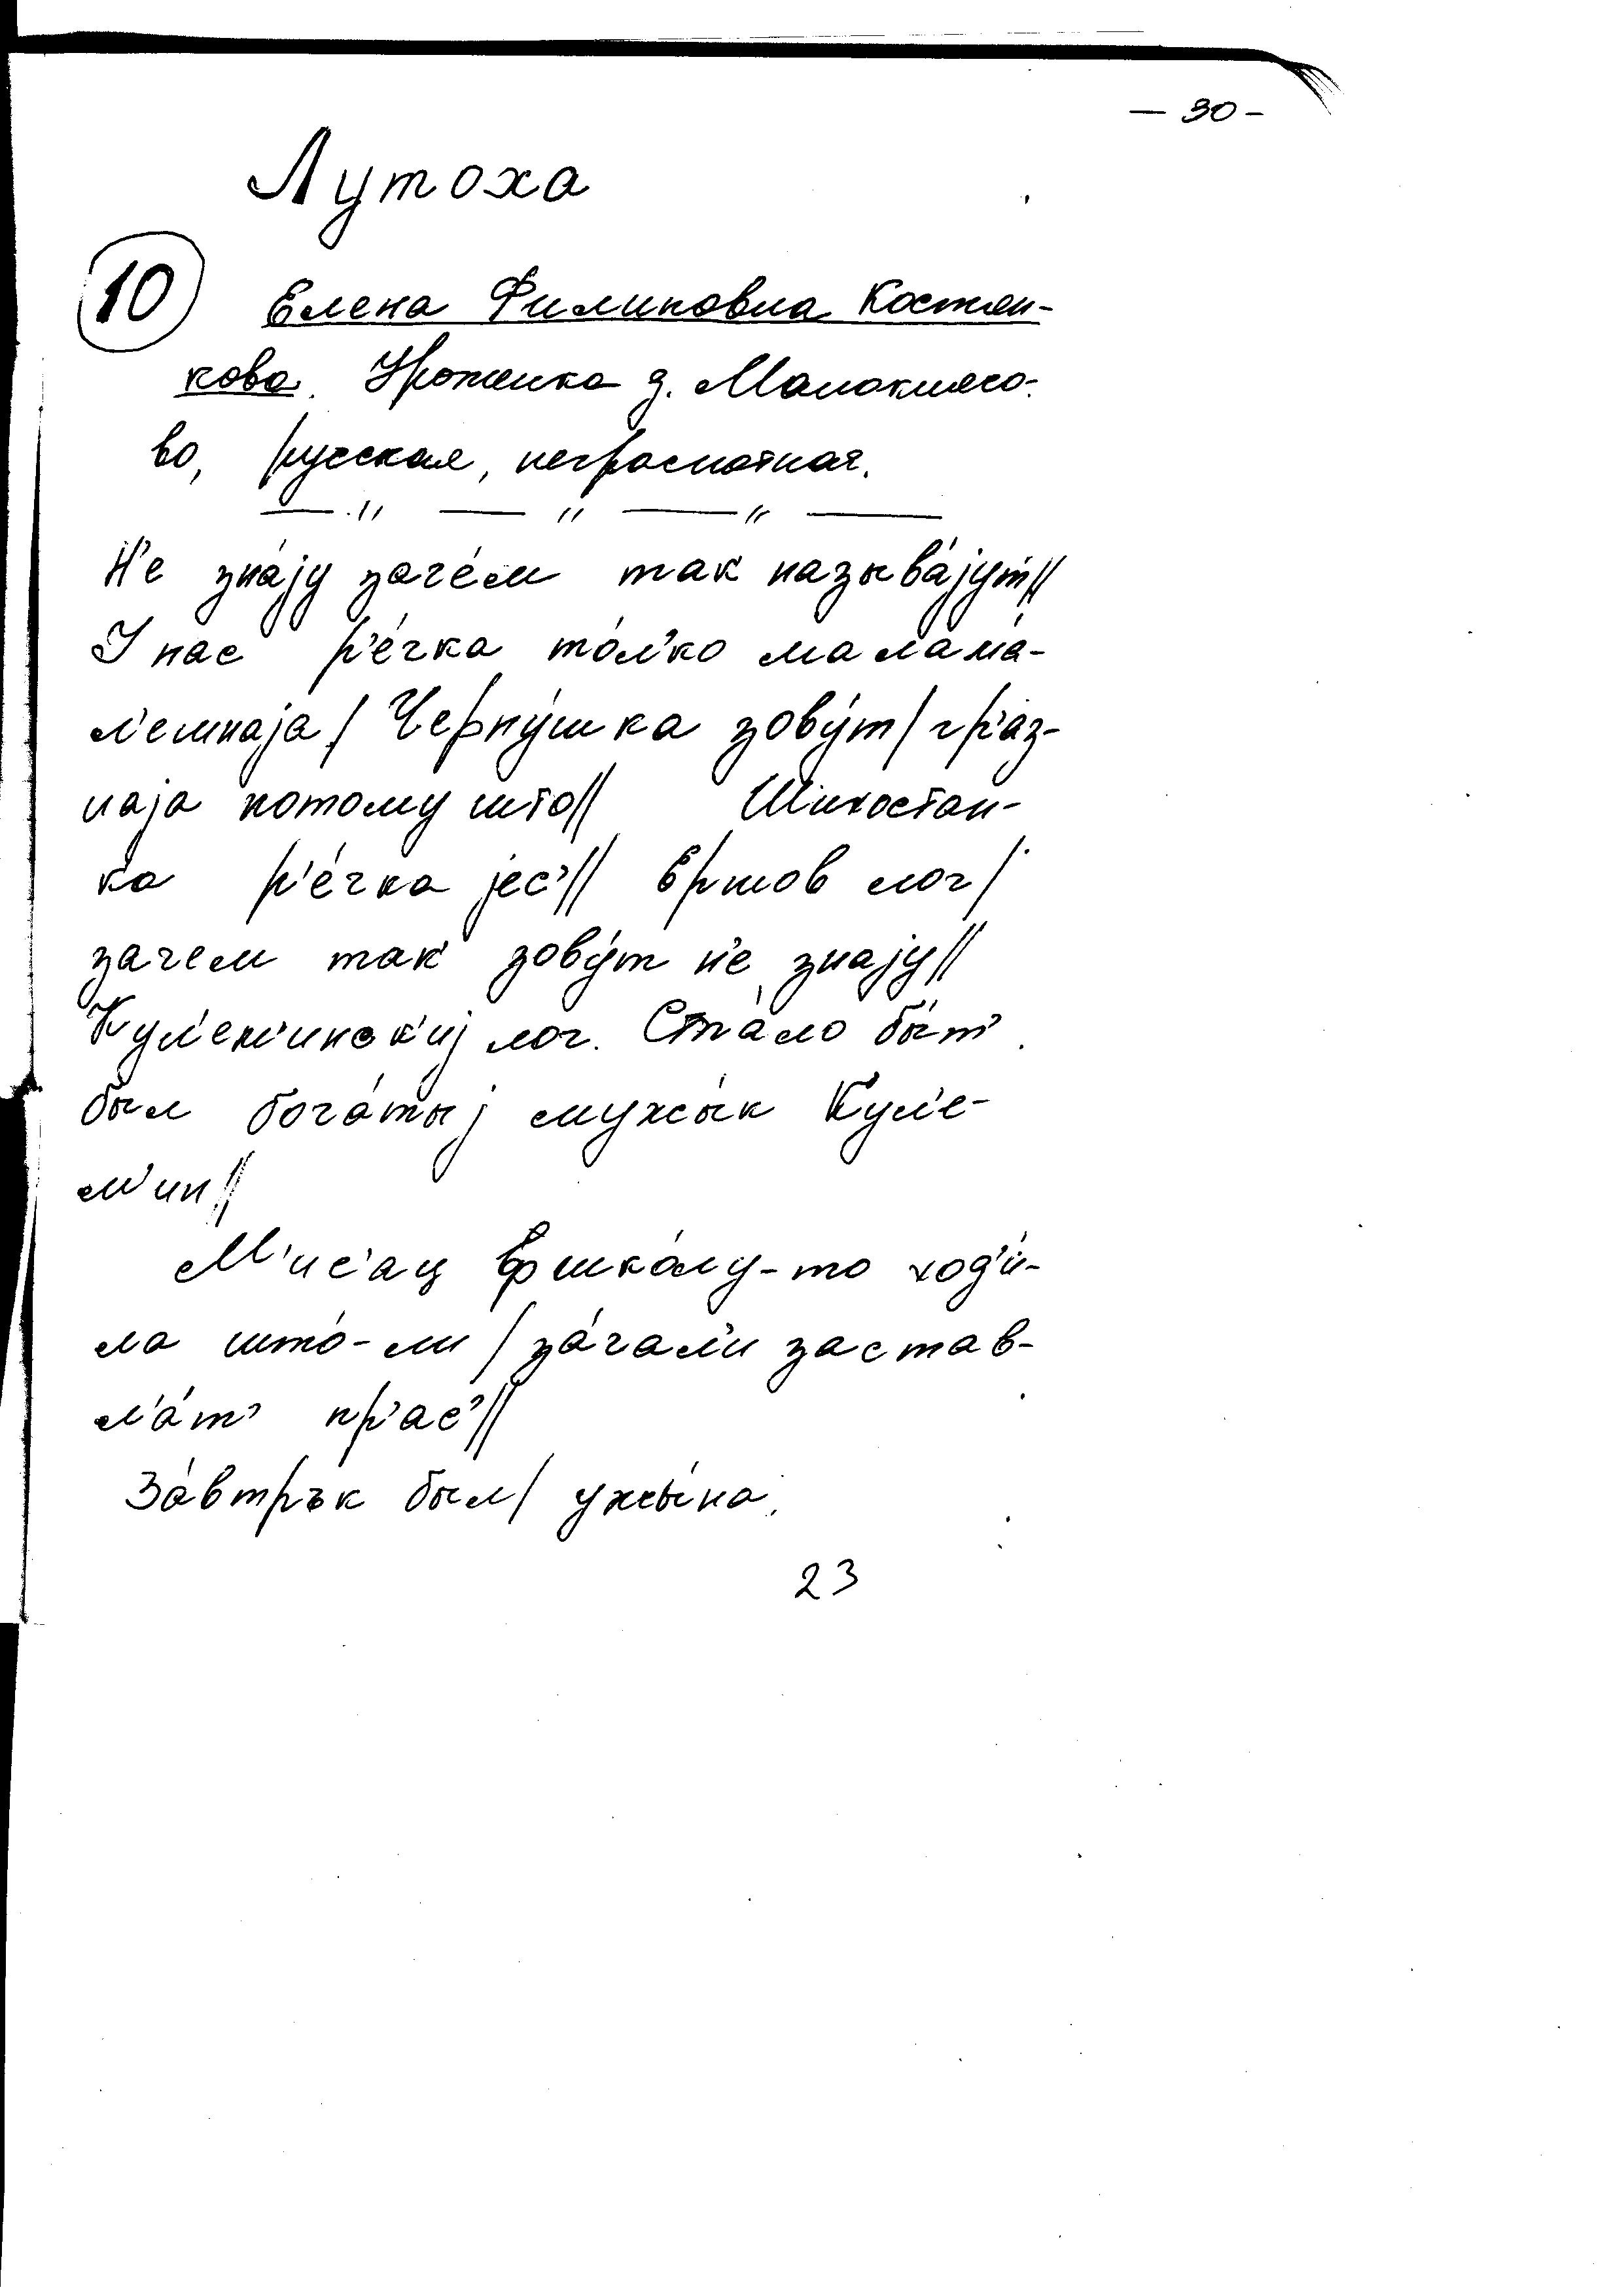 — 30 —
Лутоха
10 Елена Филиповна Костян-
кова. Уроженка д. Малокиясо-
во, русская, неграмотная.
— " — " — " —
Н'е зна́jу заче́м так называ́jут//
У нас р'е́чка то́л'ко мала ма́-
л'ешнаjа/ Черну́шка зову́т/ гр'а́з-
наjа потому што// Шихостан-
ка р'е́чка jес'// Ершов лог/
зачем так зову́т н'е знаjу//
Кул'ем'инск'иj лог. Ста́ло бы́т'
был бога́тыj мужы́к Кул'е-
м'ин//
М'ис'ац в шко́лу-то ход'и́-
ла што́-ли/ за́чал'и застав-
л'а́т' пр'ас'//
За́втрък был/ ужы́на.
23